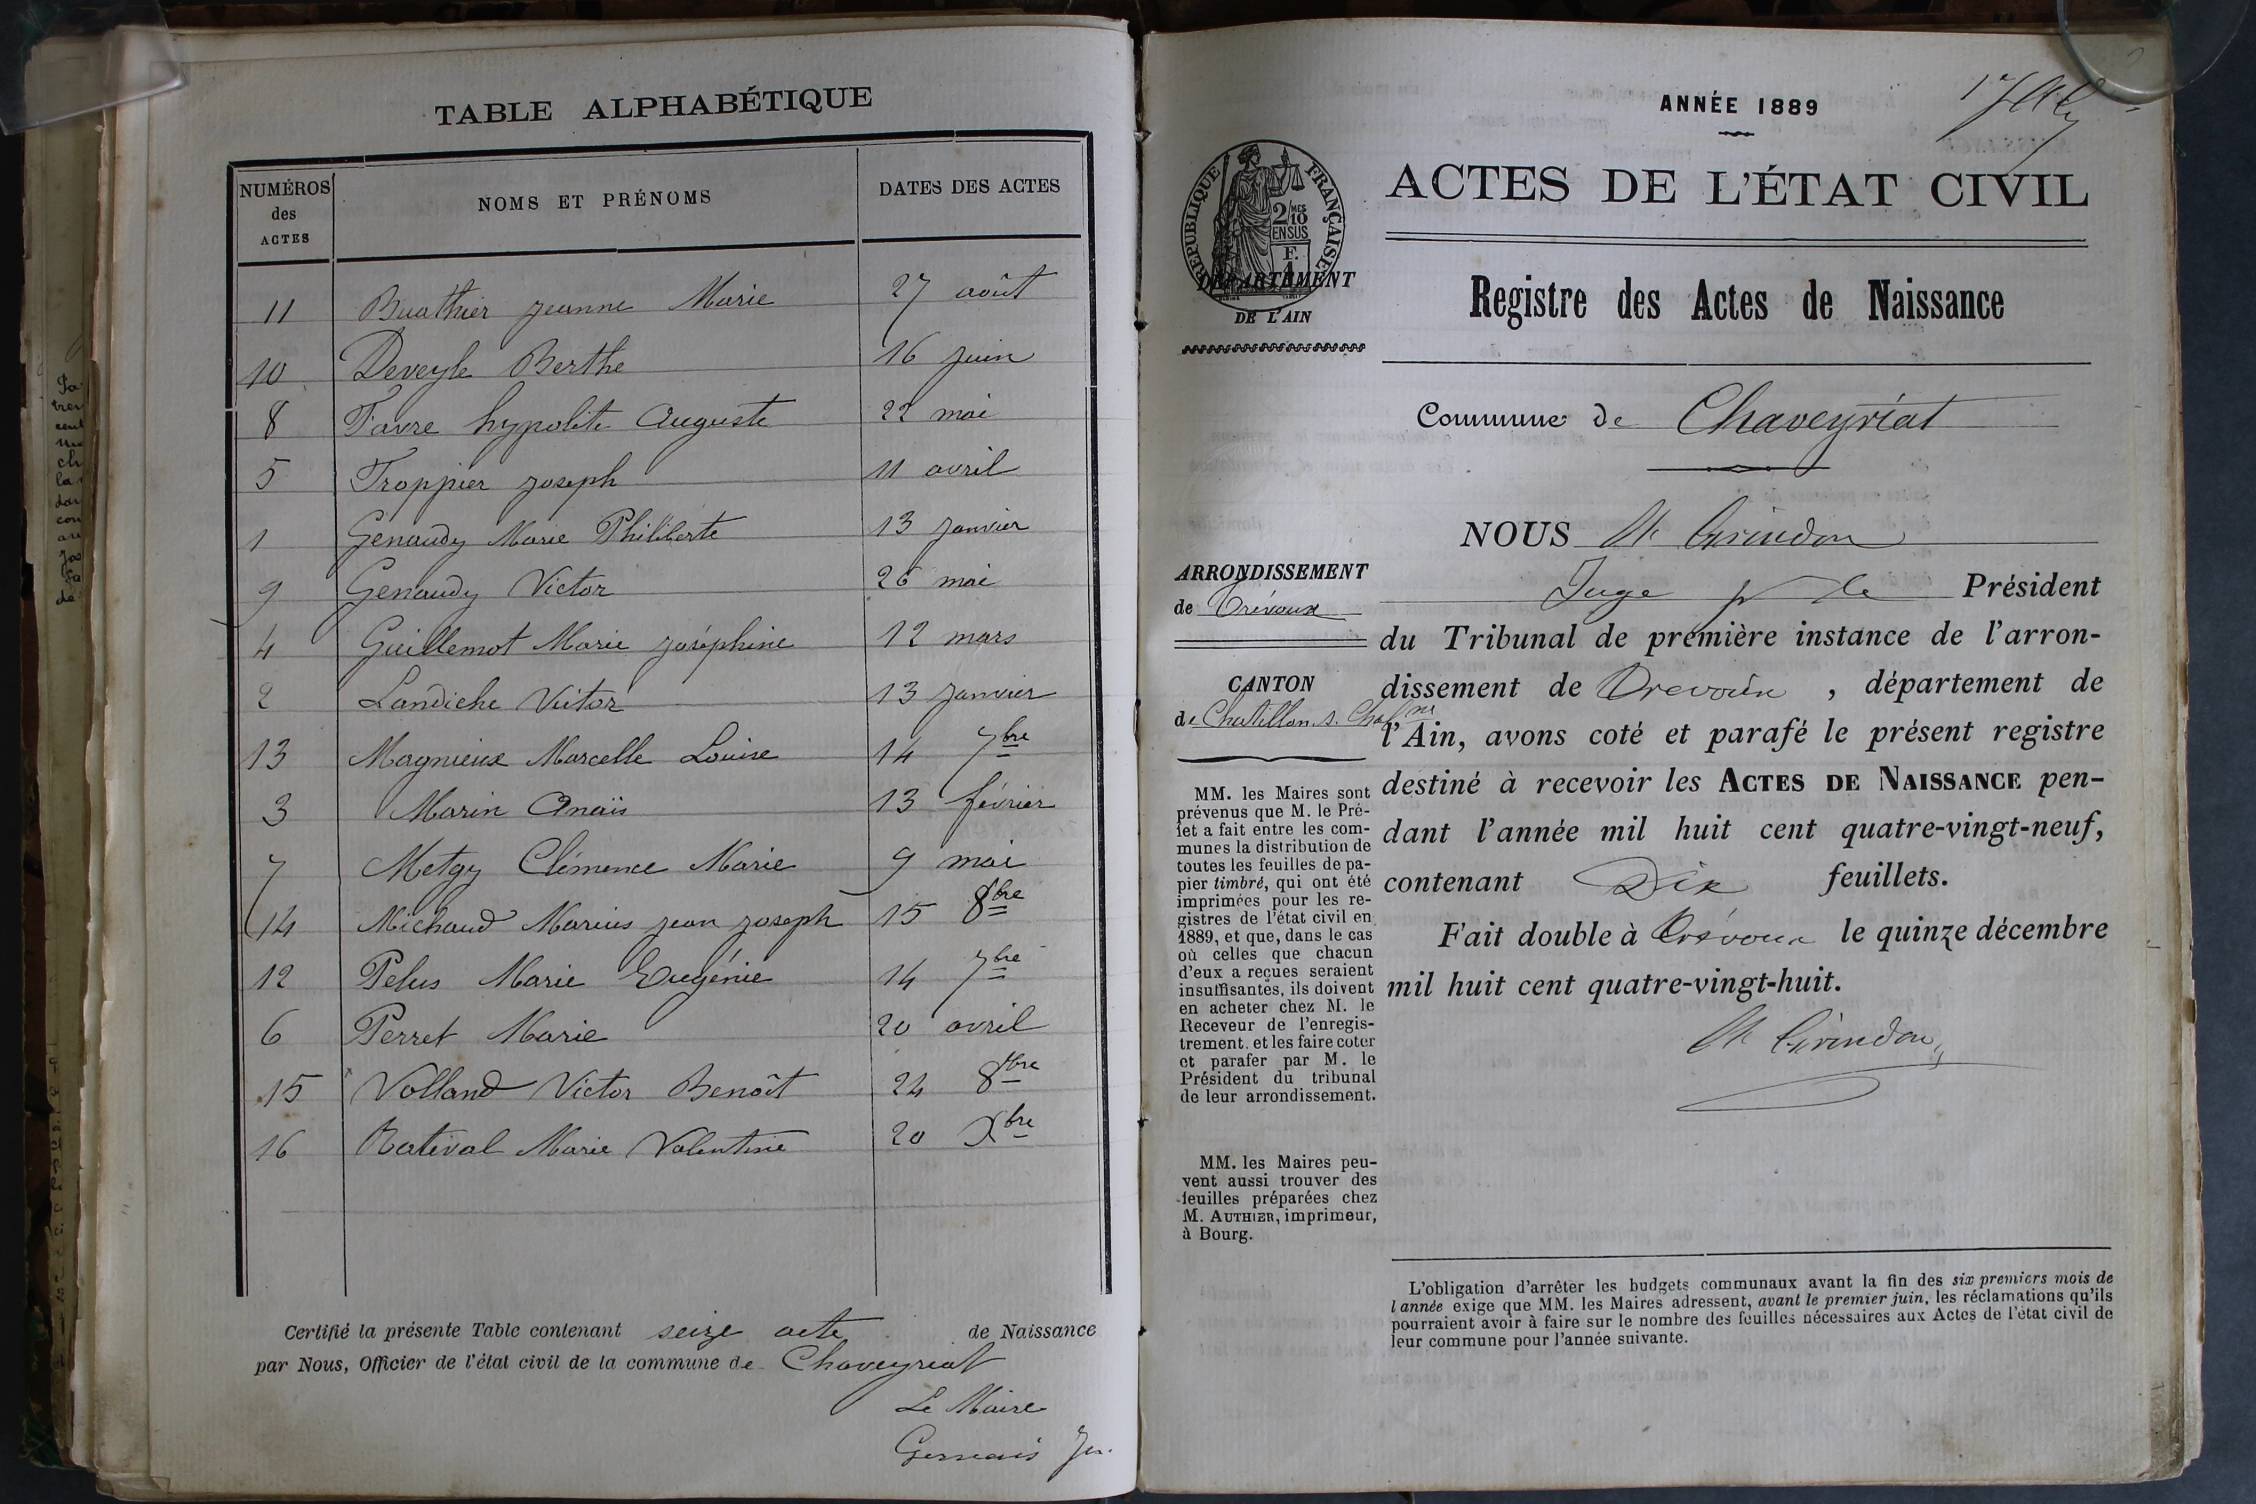 TABLE ALPHABÉTIQUE
NUMÉROS des ACTES NOMS ET PRÉNOMS DATES DES ACTES
11 Buathier Jeanne Marie 27 août
10 Deveyle Berthe 16 juin
8 Favre hypolite Auguste 22 mai
5 Froppier Joseph 11 avril
1 Génaudy Marie Philiberte 13 Janvier
9 Génaudy Victor 26 mai
4 Guillemot Marie Joséphine 12 mars
2 Landiche Victor 13 Janvier
13 Magnieux Marcelle Louise 14 7bre
3 Marin Anaïs 13 février
7 Metgy Clémence Marie 9 mai
14 Michaud Marius Jean Joseph 15 8bre
12 Pelus Marie Eugénie 14 7bre
6 Perret Marie 20 avril
15 Volland Victor Benoît 24 8bre
16 Marie Valentine 20 Xbre
Certifié la présente Table contenant seize acte de Naissance
par Nous, Officier de l'état civil de la commune de Chaveyriat
Le Maire
Gervais
ANNÉE 1889
ACTES DE L'ÉTAT CIVIL
RÉPUBLIQUE FRANÇAISE
2/10MES
EN SUS
F.
1
DÉPARTEMENT
DE L'AIN
Registre des Actes de Naissance
Commune de Chaveyriat
ARRONDISSEMENT
de Trévoux
CANTON
de Chatillon s. Chalne
MM. les Maires sont
prévenus que M. le Pré-
fet a fait entre les com-
munes la distribution de
toutes les feuilles de pa-
pier timbré, qui ont été
imprimées pour les re-
gistres de l'état civil en
1889, et que, dans le cas
où celles que chacun
d'eux a reçues seraient
insuffisantes, ils doivent
en acheter chez M. le
Receveur de l'enregis-
trement. et les faire coter
et parafer par M. le
Président du tribunal
de leur arrondissement.
MM. les Maires peu-
vent aussi trouver des
feuilles préparées chez
M. AUTHIER, imprimeur,
à Bourg.
NOUS M. Girindon
Juge pr le Président
du Tribunal de première instance de l'arron-
dissement de Trévoux, département de
l'Ain, avons coté et parafé le présent registre
destiné à recevoir les ACTES DE NAISSANCE pen-
dant l'année mil huit cent quatre-vingt-neuf,
contenant Dix feuillets.
Fait double à Trévoux le quinze décembre
mil huit cent quatre-vingt-huit.
M. Girindon
L'obligation d'arrêter les budgets communaux avant la fin des six premiers mois de
l'année exige que MM. les Maires adressent, avant le premier juin, les réclamations qu'ils
pourraient avoir à faire sur le nombre des feuilles nécessaires aux Actes de l'état civil de
leur commune pour l'année suivante.